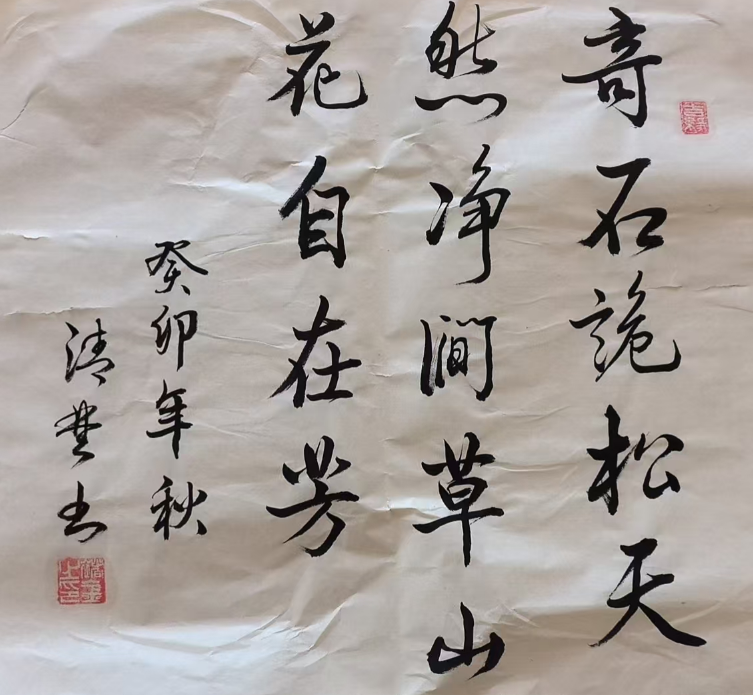 奇石詭松天
然净澗草山
花自在芳
癸卯年秋
清 书